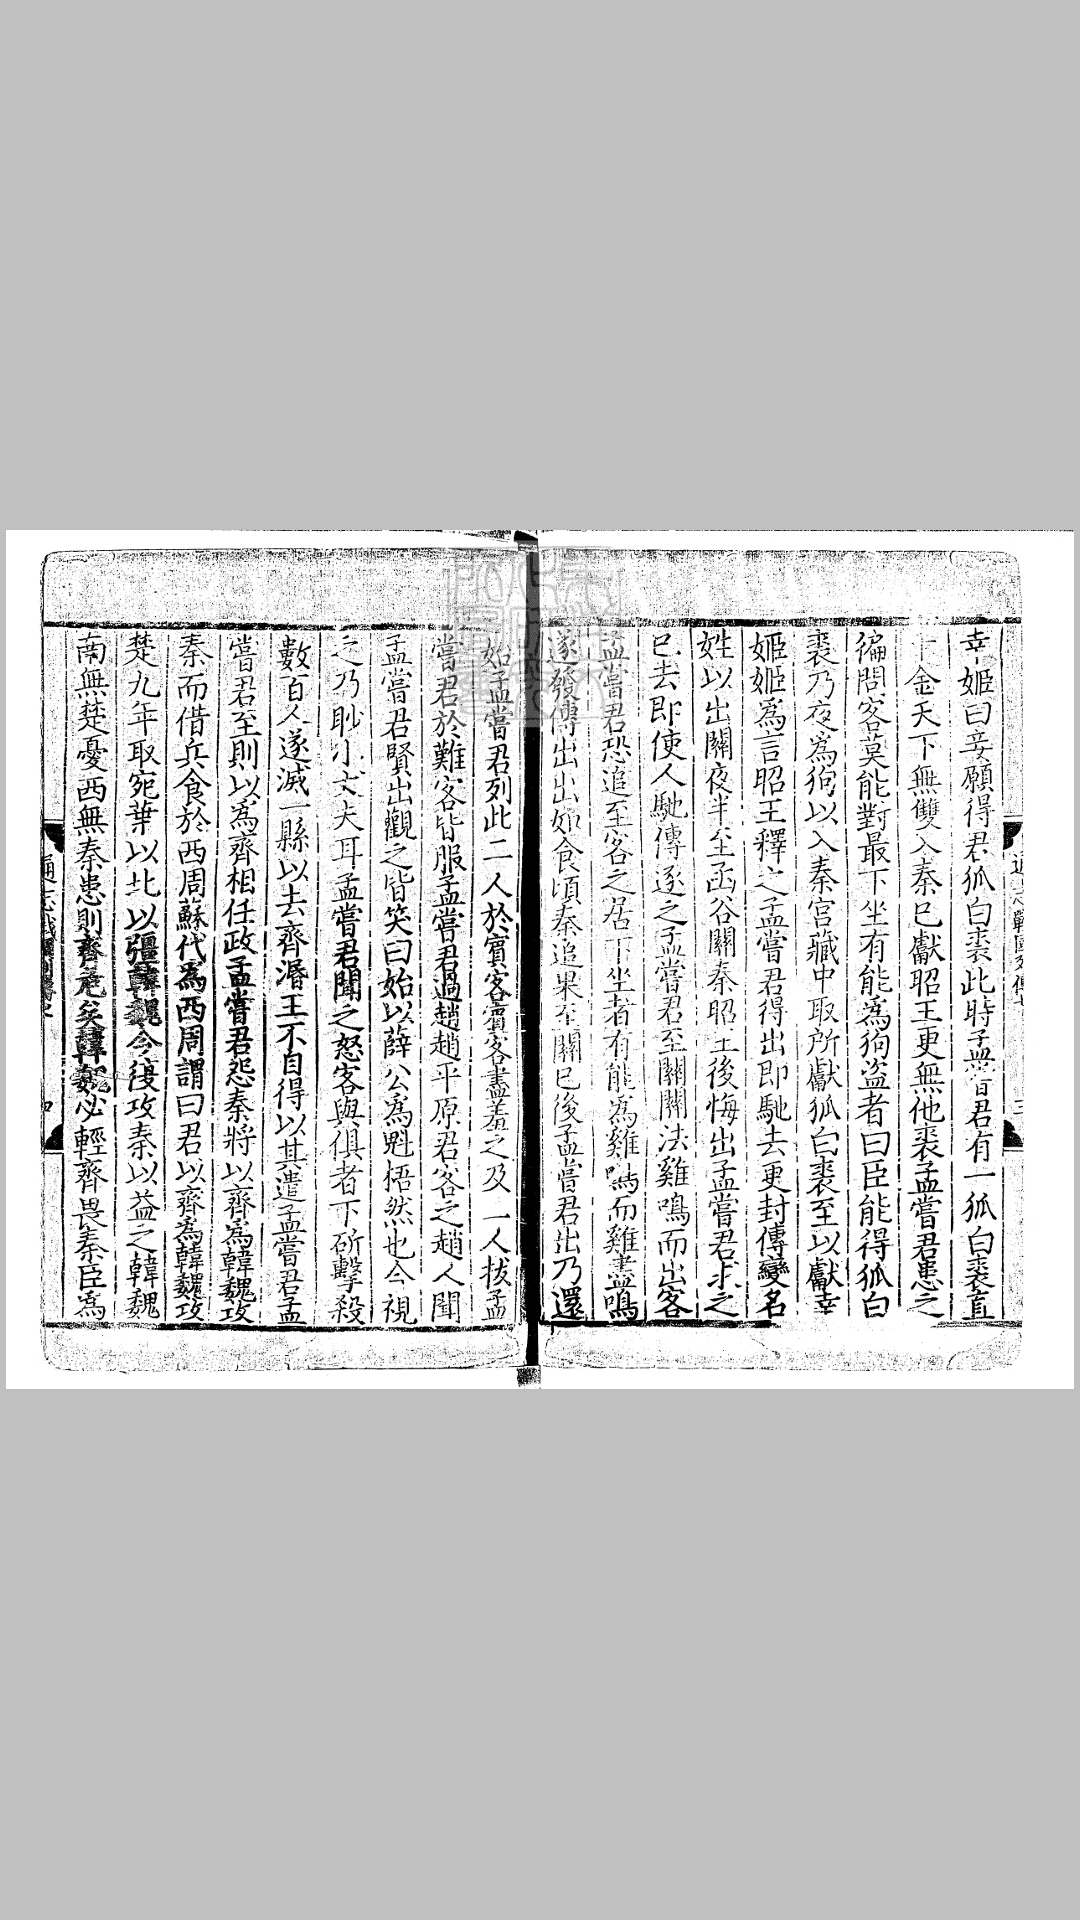 幸姬曰妾願得君狐白裘此時孟嘗君有一狐白裘直
千金天下無雙入秦已獻昭王更無他裘孟嘗君患之
徧問客莫能對最下坐有能為狗盗者曰臣能得狐白
裘乃夜為狗以入秦宫藏中取所獻狐白裘至以獻幸
姬姬為言昭王釋之孟嘗君得出即馳去更封傳變名
姓以出關夜半至函谷關秦昭王後悔出孟嘗君求之
已去即使人馳傳逐之孟嘗君至關關法雞鳴而出客
孟嘗君恐追至客之居下坐者有能為雞鳴而雞盡鳴
遂發傳出出如食頃秦追果至關已後孟嘗君出乃還
始孟嘗君列此二人於賓客賓客盡羞之及一人拔孟
嘗君於難客皆服孟嘗君過趙趙平原君客之趙人聞
孟嘗君賢出觀之皆笑曰始以薛公為魁梧然也今視
之乃眇小丈夫耳孟嘗君聞之怒客與俱者下斫擊殺
數百人遂滅一縣以去齊湣王不自得以其遣孟嘗君孟
嘗君至則以為齊相任政孟嘗君怨秦將以齊為韓魏攻
秦而借兵食於西周蘇代為西周謂曰君以齊為韓魏攻
楚九年取宛葉以北以彊韓魏今復攻秦以益之韓魏
南無楚憂西無秦患則齊危矣韓魏必輕齊畏秦臣為